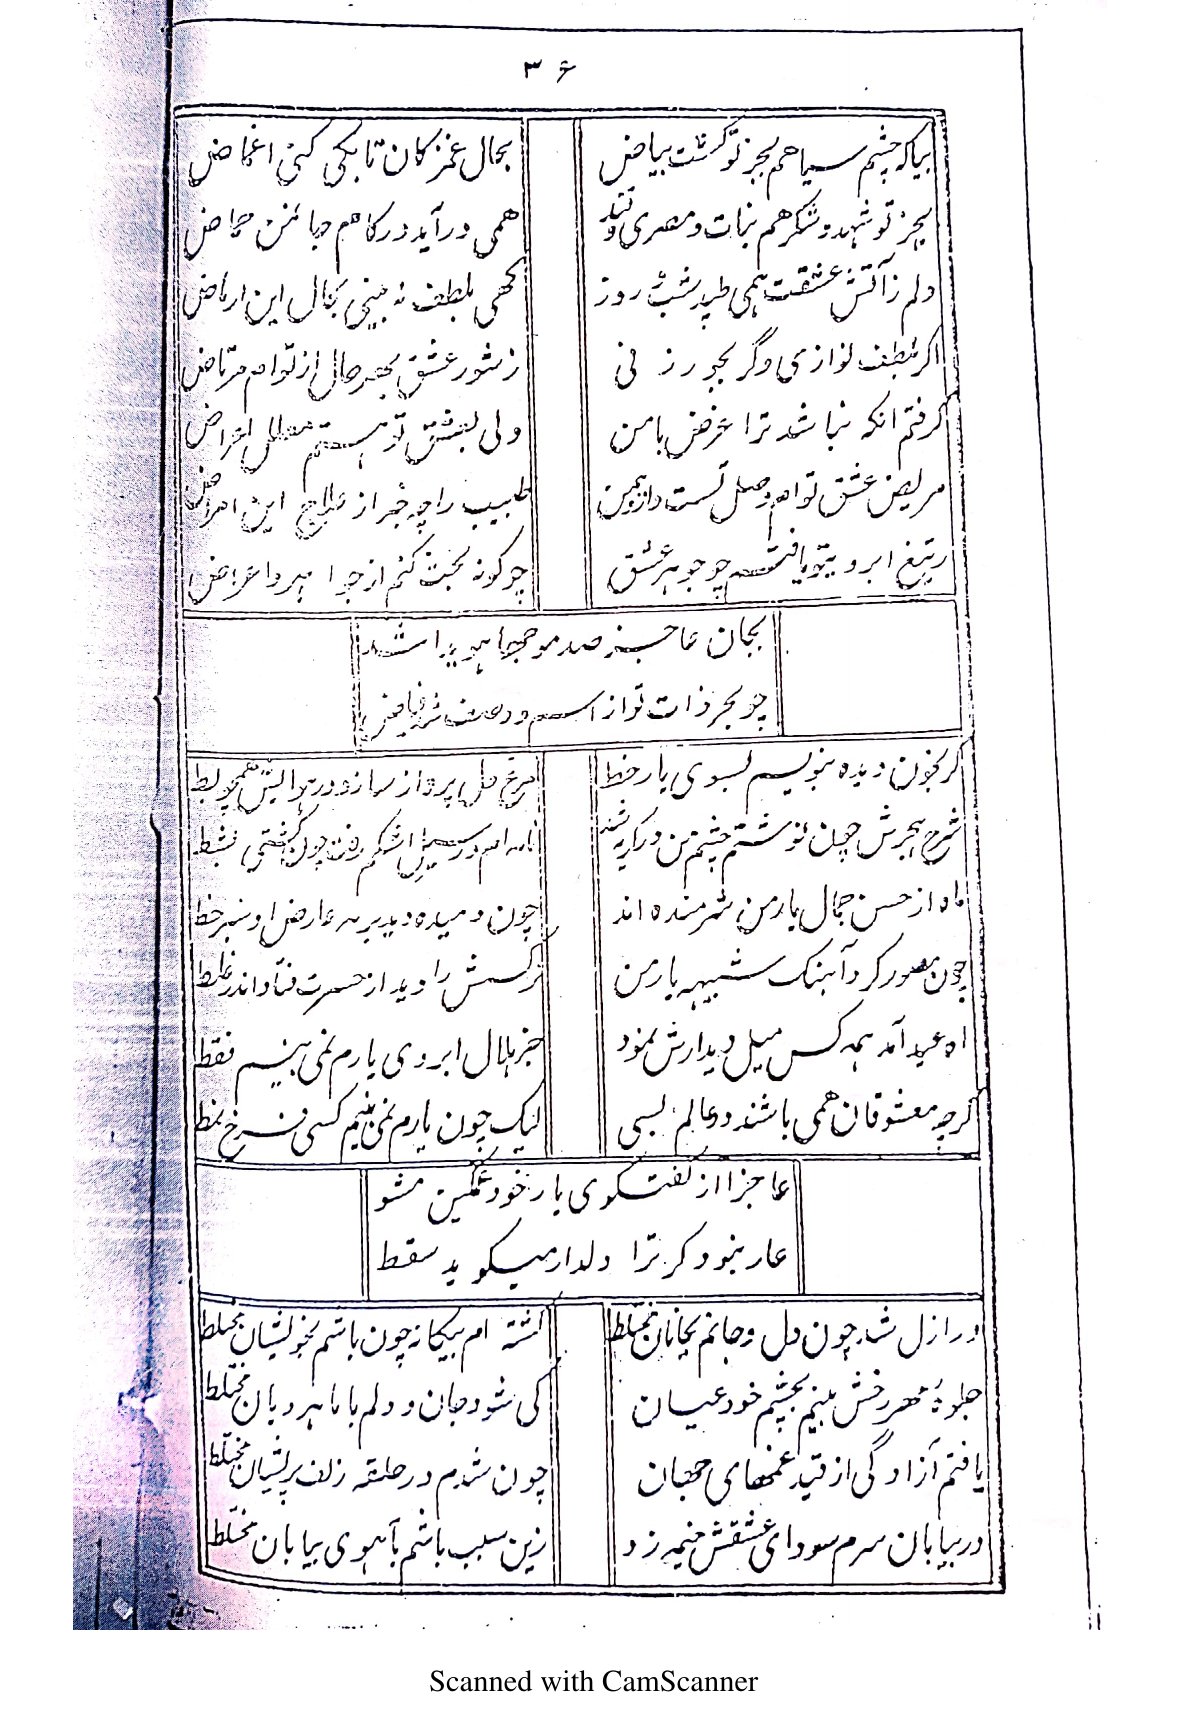 ۳۶
بیا که چشم سیاهم بجز تو گشت بیاض
بحال غمزکان تا بکی کنی اغماض
بجز تو شهد و شکر هم نبات و مصری و قند
همی در آید در کامم حیاض
دلم ز آتش عشقت همی طپد شب روز
گهی بلطف نه بینی بحال این ارتاض
اگر بلطف نوازی و گر بجور زنی
ز شور عشق بهر حال از توام مرتاض
گرفتم آنکه نباشد ترا غرض با من
ولی بعشق تو هستم اعراض
مریض عشق توام وصل تست دارو من
طبیب را چه خبر از علاج این امراض
ز تیغ ابرویتو یافته چو جوهر عشق
چو گونه بحث کنم از جواهر و اعراض
بجان عاجز صد موجها هویدا شد
چو بحر ذات تو از اسم و وصف شد فیاض
گر بخون دیده بنویسم بسوی یار خط
مرغ دل پرواز سازد در هوایش همچو بط
شرح هجرش چون نوشتم چشم من در گریه شد
نامه ام در سیل اشکم رفت چون کشتی بشط
ماه از حسن جمال یار من شرمنده اند
چون دمیده دید بر مه عارض او سبز خط
چون مصور کرد آهنگ شبیه یار من
نرگسش را دید از حسرت فتاد اندر غلط
ماه عید آمد همه کس میل دیدارش نمود
جز هلال ابروی یارم نمی بینم فقط
گرچه معشوقان همی باشند در عالم بسی
لیک چون یارم نمی بینم کسی فرخ نمط
عاجزا از گفتگوی یار خود غمگین مشو
عار نبود گر ترا دلدار میگوید سقط
در ازل شد چون دل و جانم بجانان مختلط
گشته ام بیگانه چون باشم بخویشان مختلط
جلوهٔ مهر رخش بینم بچشم خود عیان
کی شود جان و دلم با ماهرویان مختلط
یافتم آزادگی از قید غمهای جهان
چون شدم در حلقه زلف پریشان مختلط
در بیابان سرم سودای عشقش خیمه زد
زین سبب باشم بآهوی بیابان مختلط
Scanned with CamScanner